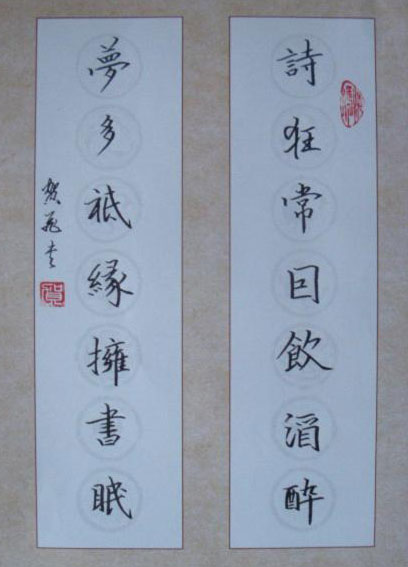 詩狂常因飲酒醉
夢多祗緣擁書眠